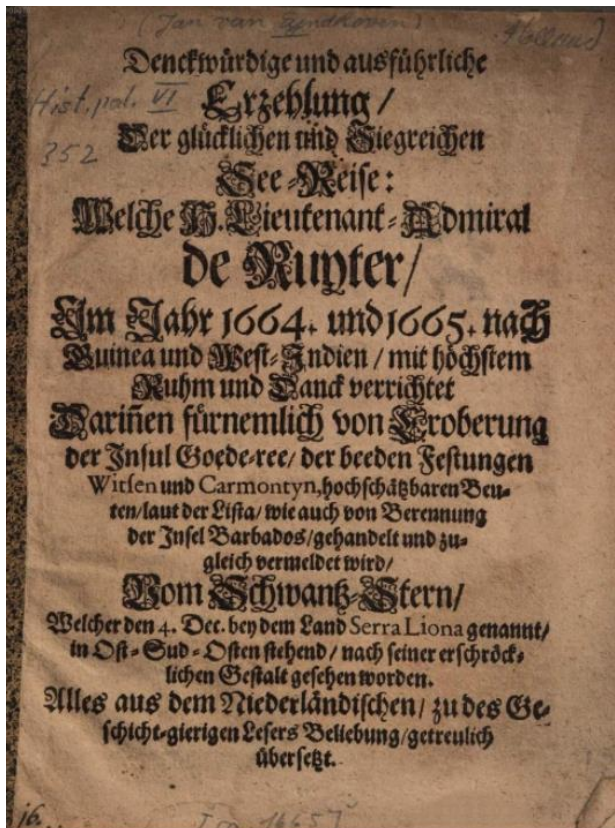 (Jan van Eyndhoven)
Holland
Denckwürdige und ausführliche
Hist. pol. VI
Erzehlung/
352
Der glücklichen und Siegreichen
See-Reise:
Welche H. Lieutenant-Admiral
de Ruyter/
Im Jahr 1664. und 1665. nach
Guinea und West-Indien / mit höchstem
Ruhm und Danck verrichtet
Dariñen fürnemlich von Eroberung
der Insul Goede-ree/ der beeden Festungen
Witsen und Carmontyn, hochschätzbaren Beu-
ten/laut der Lista/ wie auch von Berennung
der Insel Barbados/gehandelt und zu-
gleich vermeldet wird/
Vom Schwantz-Stern/
Welcher den 4. Dec. bey dem Land Serra Liona genannt/
in Ost-Sud-Osten stehend/ nach seiner erschröck-
lichen Gestalt gesehen worden.
Alles aus dem Niederländischen/ zu des Ge-
schicht-gierigen Lesers Beliebung/getreulich
übersetzt.
16.